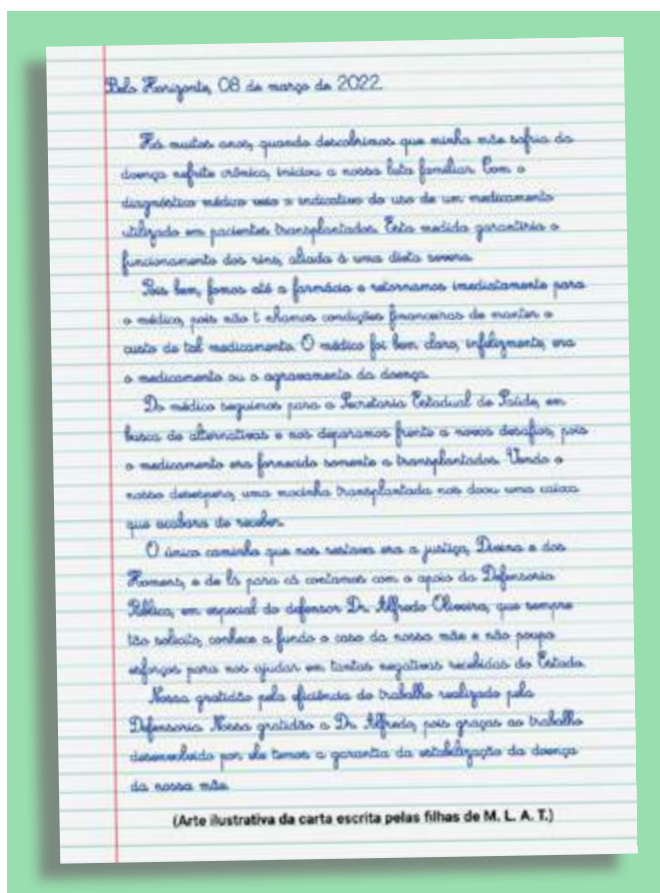 Belo Horizonte, 08 de março de 2022.
Há muitos anos, quando descobrimos que minha mãe sofria da
doença nefrite crônica, iniciou a nossa luta familiar. Com o
diagnóstico médico veio o indicativo do uso de um medicamento
utilizado em pacientes transplantados. Esta medida garantiria o
funcionamento dos rins, aliada à uma dieta severa.
Pois bem, fomos até a farmácia e retornamos imediatamente para
o médico, pois não t nhamos condições financeiras de manter o
custo de tal medicamento. O médico foi bem claro, infelizmente, era
o medicamento ou o agravamento da doença.
Do médico seguimos para a Secretaria Estadual de Saúde, em
busca de alternativas e nos deparamos frente a novos desafios, pois
o medicamento era fornecido somente a transplantados. Vendo o
nosso desespero, uma mocinha transplantada nos doou uma caixa
que acabara de receber.
O único caminho que nos restava era a justiça, Divina e dos
Homens, e de lá para cá contamos com o apoio da Defensoria
Pública, em especial do defensor Dr. Alfredo Oliveira, que sempre
tão solícito, conhece a fundo o caso da nossa mãe e não poupa
esforços para nos ajudar em tantas negativas recebidas do Estado.
Nossa gratidão pela eficiência do trabalho realizado pela
Defensoria. Nossa gratidão a Dr. Alfredo, pois graças ao trabalho
desenvolvido por ele temos a garantia da estabilização da doença
da nossa mãe.
(Arte ilustrativa da carta escrita pelas filhas de M. L. A. T.)